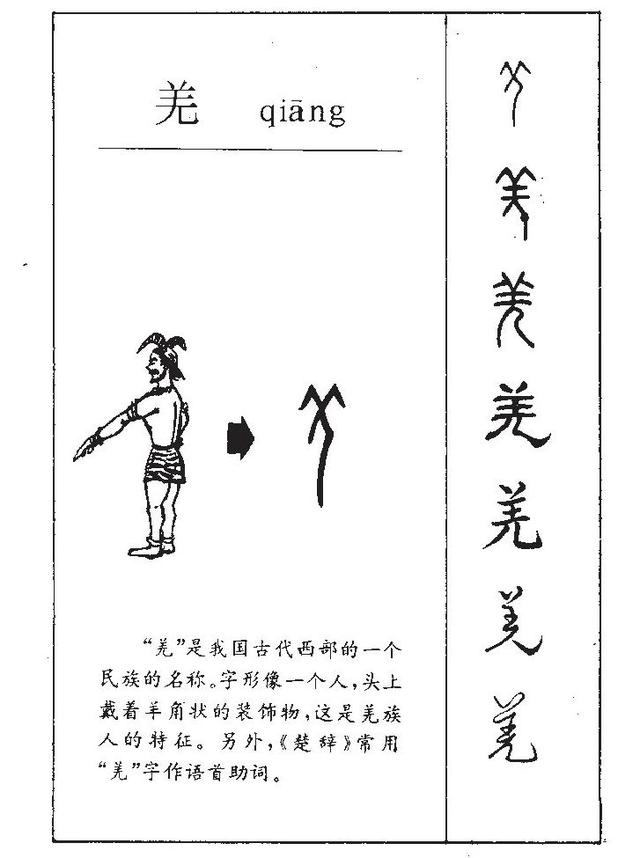 羌 qiāng
“羌”是我国古代西部的一个
民族的名称。字形像一个人，头上
戴着羊角状的装饰物，这是羌族
人的特征。另外，《楚辞》常用
“羌”字作语首助词。
羌
羌
羌
羌
羌
羌
羌